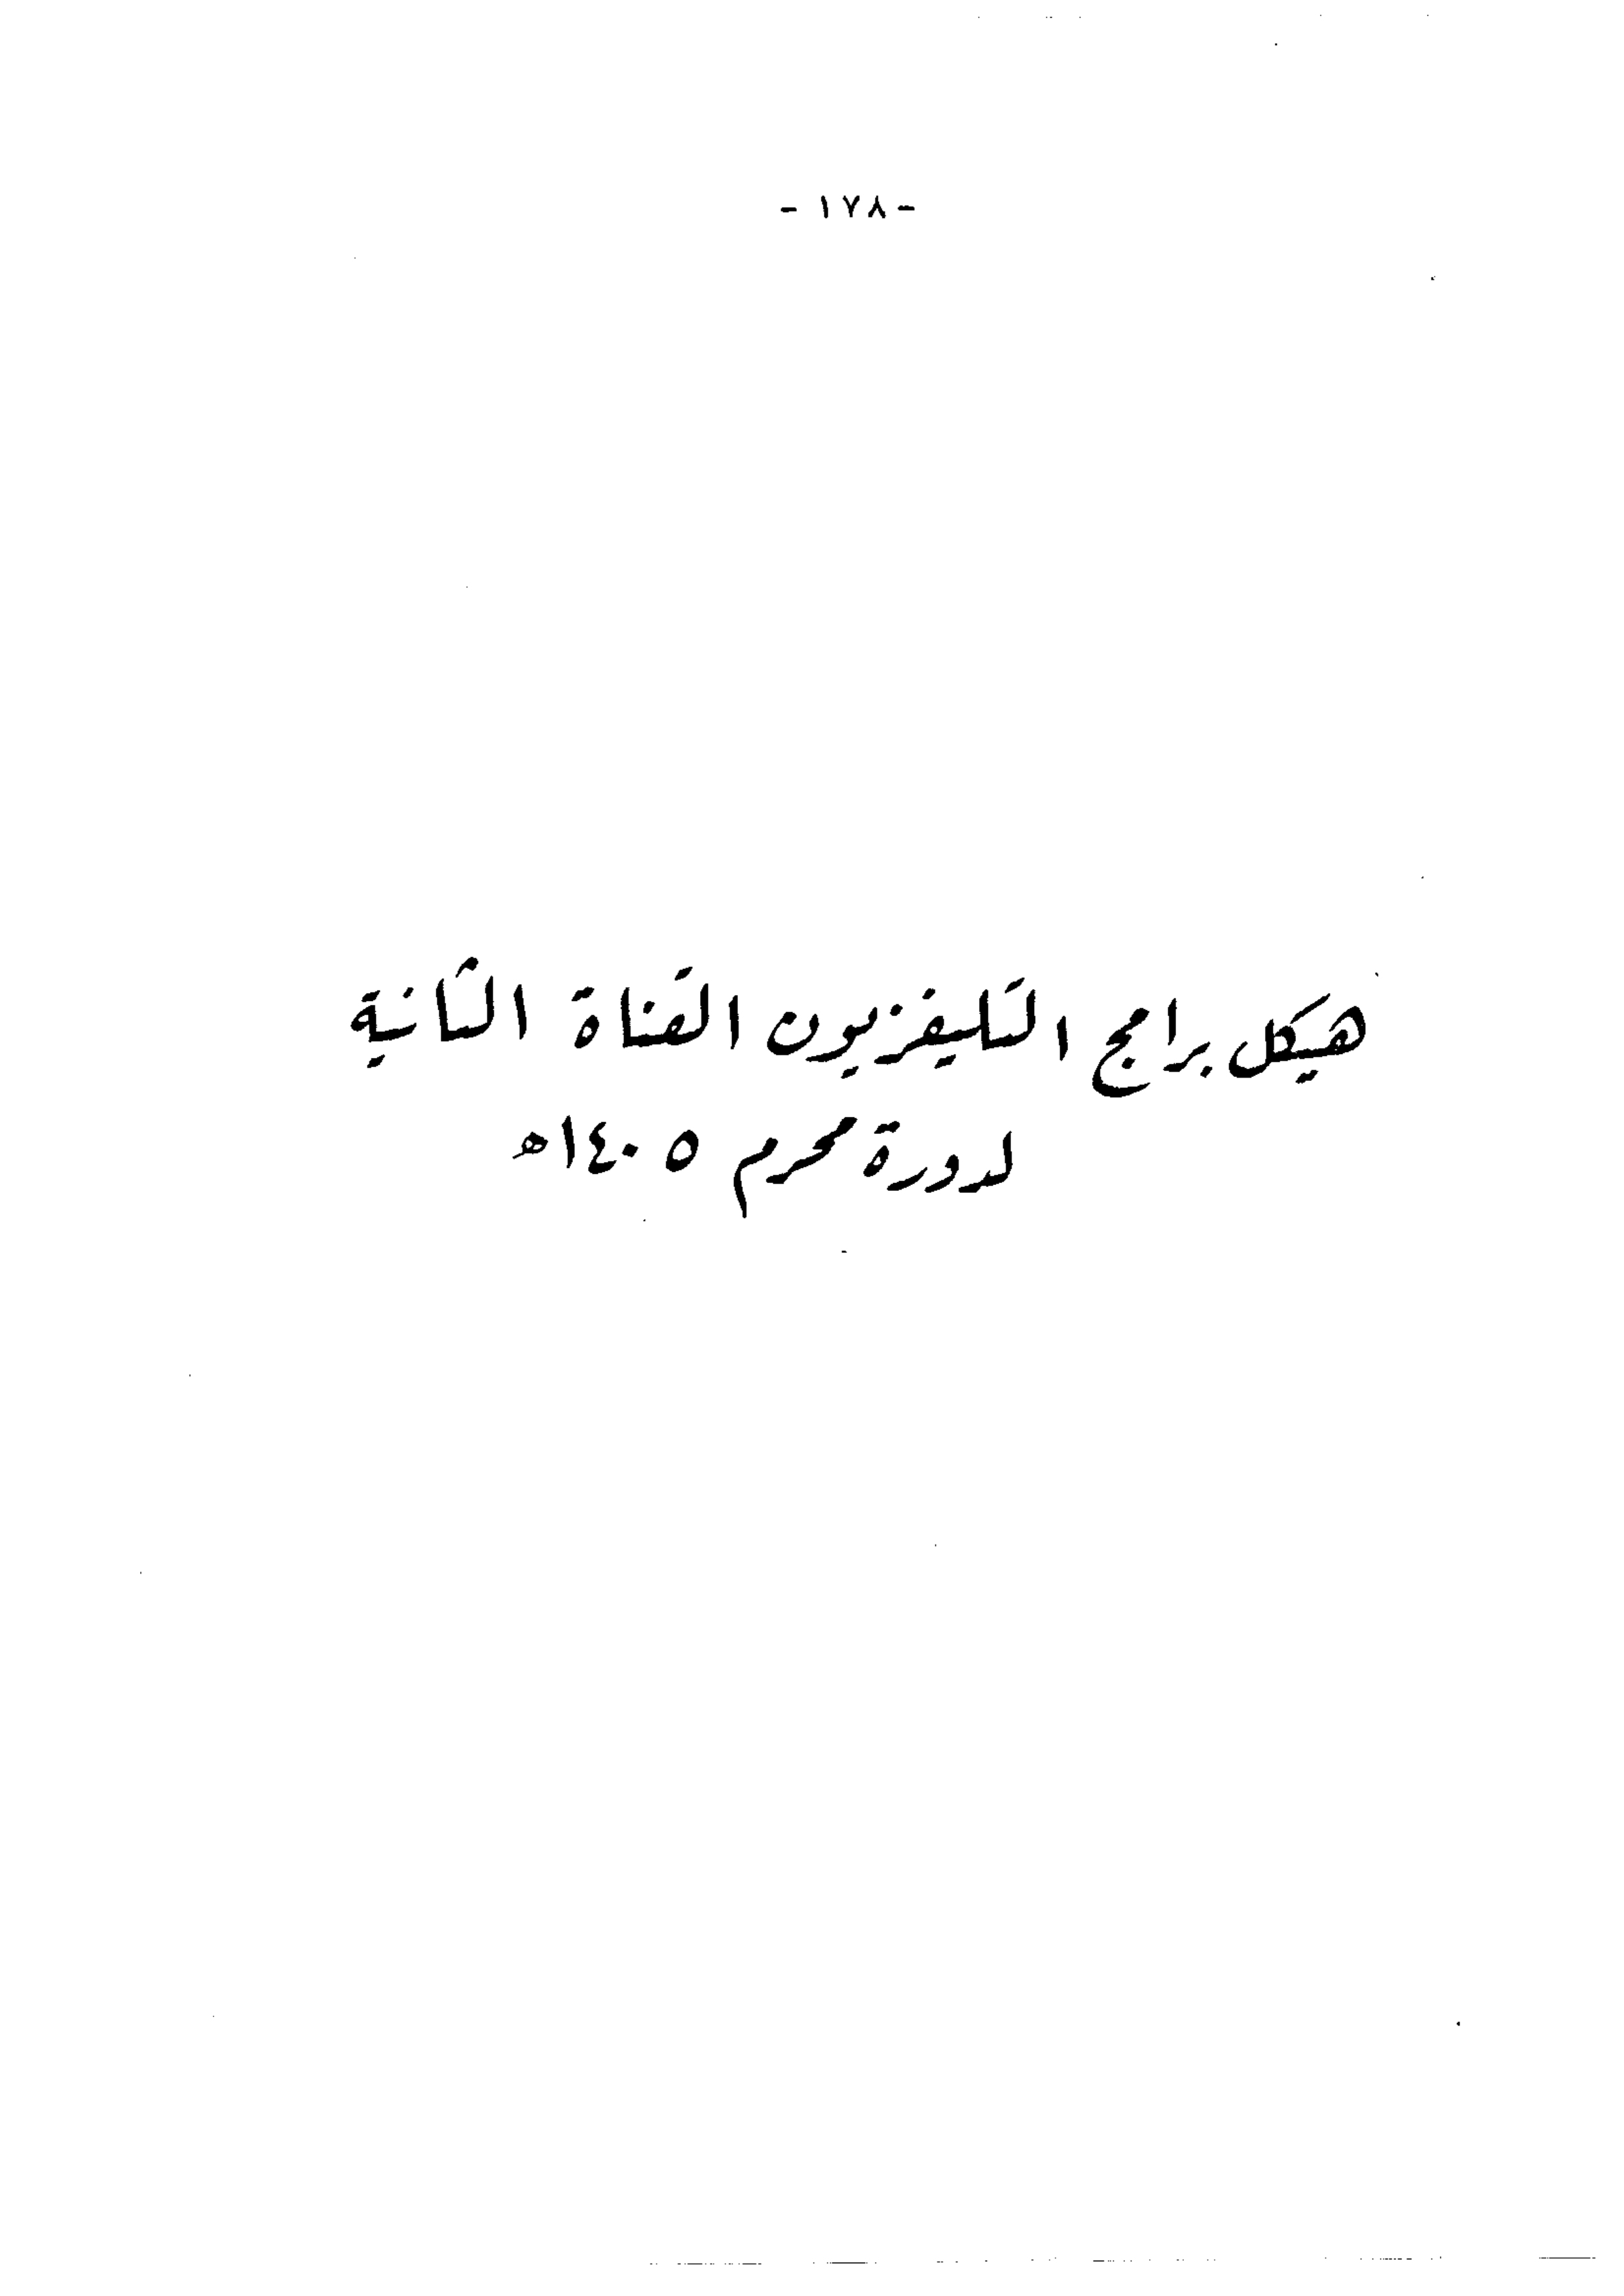 - ١٧٨ -
هيكل برامج التليفزيون القناة الثانية
لدورة محرم ١٤٠٥هـ